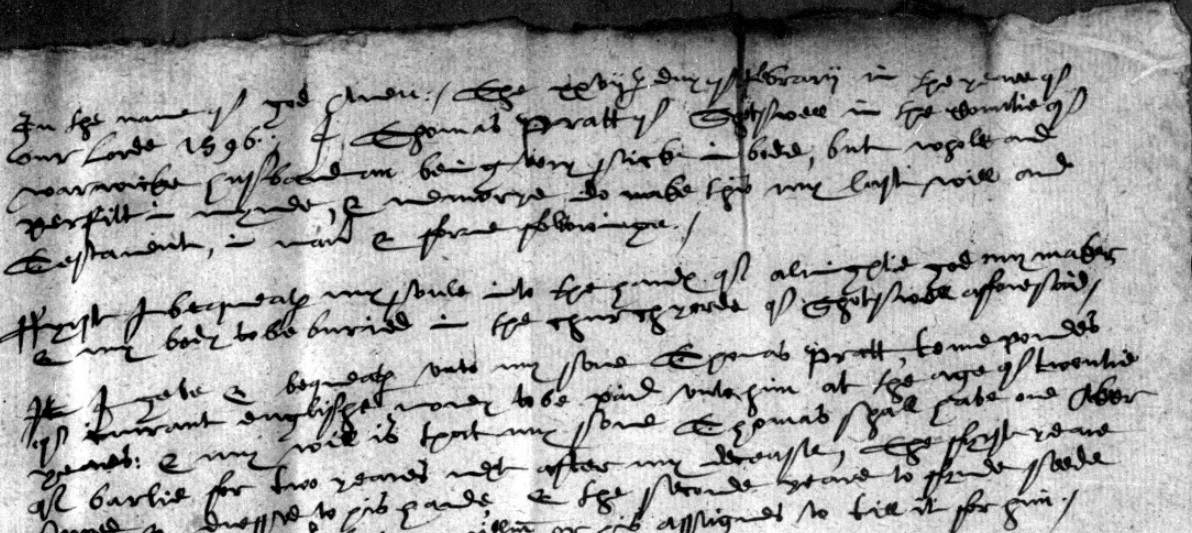 In the name of god Amen: / The xxvijth day of februarij in the yeare of
our Lorde 1596: / I, Thomas Pratt of Shotswell in the Countie of
warwicke husbandman being very sicke in bodie, but whole and
perfitt in mynde, & memorye do make this my last will and
Testament, in manr & forme followinge. /
ffyrst I bequeath my soule into the hands of almightie god my maker
& my body to be buried in the churchyarde of Shotswell afforesaid /
It I geve & bequeath unto my sone Thomas Pratt, tenne poundes
of currant englishe money to be paid unto him at the age of twentie
yeares: & my will is that my sone Thomas shall have one Aker
of barlie for two yeares next after my decease, The fyrst yeare
sowed & dressed to his hande, & the seconde yeare to fynde seede
or his assignes to till it for him. /